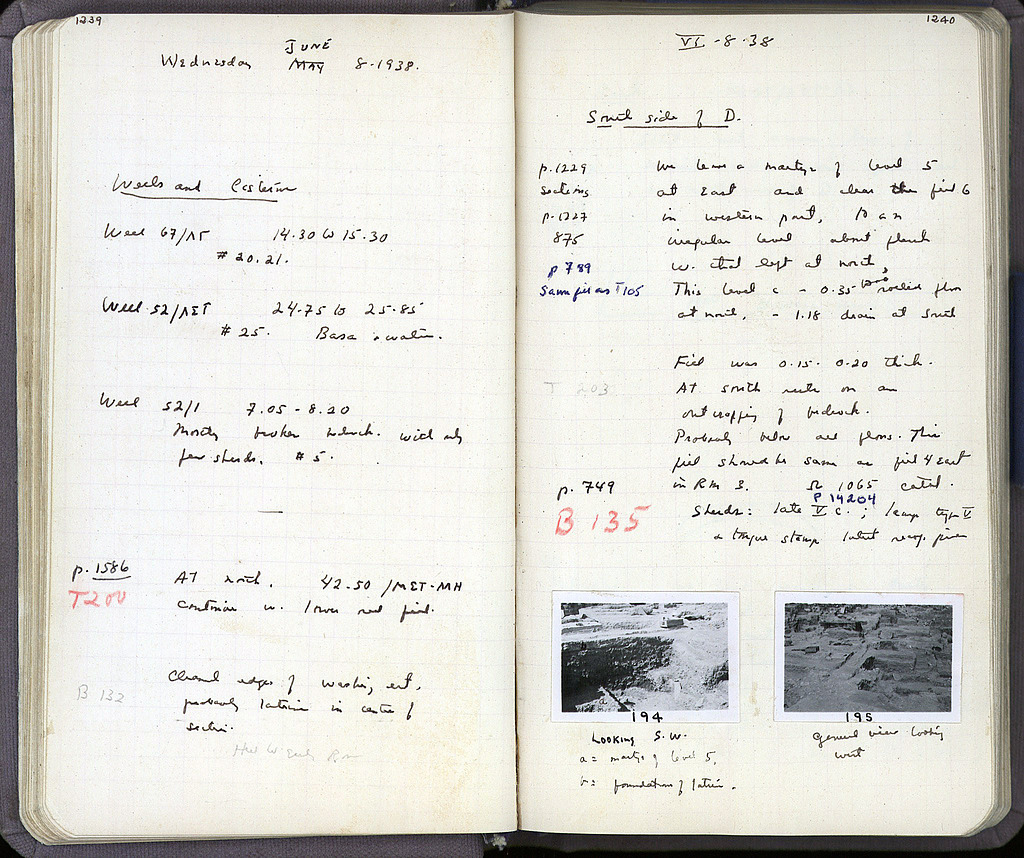 1239
JUNE
Wednesday MAY 8-1938.
Wells and Cistern
Well 67/ΛΓ 14.30 to 15.30
# 20.21.
Well 52/ΛΣΤ 24.75 to 25.85
# 25. Basa water.
Well 52/1 7.05 - 8.20
Mostly broken bedrock. with only
few sherds. # 5.
p. 1586
T200
At north. 42.50 /ΜΣΤ-ΜΗ
Continue w. lower red fill.
B 132
Cleaned edges of washing
probably latrine in centre of
section.
1240
VI - 8 - 38
South side of D.
p. 1229
sections
p. 1227
875
p 789
Same fill as T105
We leave a martyr of level 5
at East and clear the fill 6
in western part, to an
irregular level about flush
w. that left at north,
This level c - 0.35 floor
at north, - 1.18 drain at south
T 203
Fill was 0.15 - 0.20 thick.
At south rests on an
outcropping of bedrock.
Probably below all floors. This
fill should be same as fill 4 east
p. 749
in Rm 3. Ω 1065 catal.
P 14204
B 135
Sherds: late V c.; lamp type V
a tongue stamp latest
194
Looking S.W.
a = martyr of level 5,
b = foundation of latrine.
195
General view looking
west